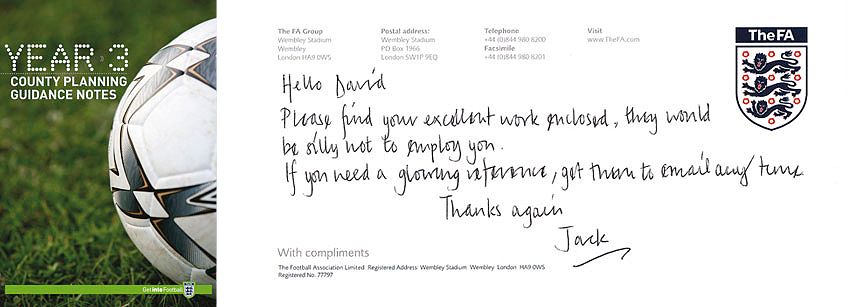 YEAR 3
COUNTY PLANNING
GUIDANCE NOTES
Get into Football
The FA Group
Wembley Stadium
Wembley
London HA9 0WS
Postal address:
Wembley Stadium
PO Box 1966
London SW1P 9EQ
Telephone
+44 (0)844 980 8200
Facsimile
+44 (0)844 980 8201
Visit
www.TheFA.com
The FA
Hello David
Please find your excellent work enclosed, they would
be silly not to employ you.
If you need a glowing reference, get them to email any time
Thanks again
Jack
With compliments
The Football Association Limited Registered Address: Wembley Stadium Wembley London HA9 0WS
Registered No. 77797